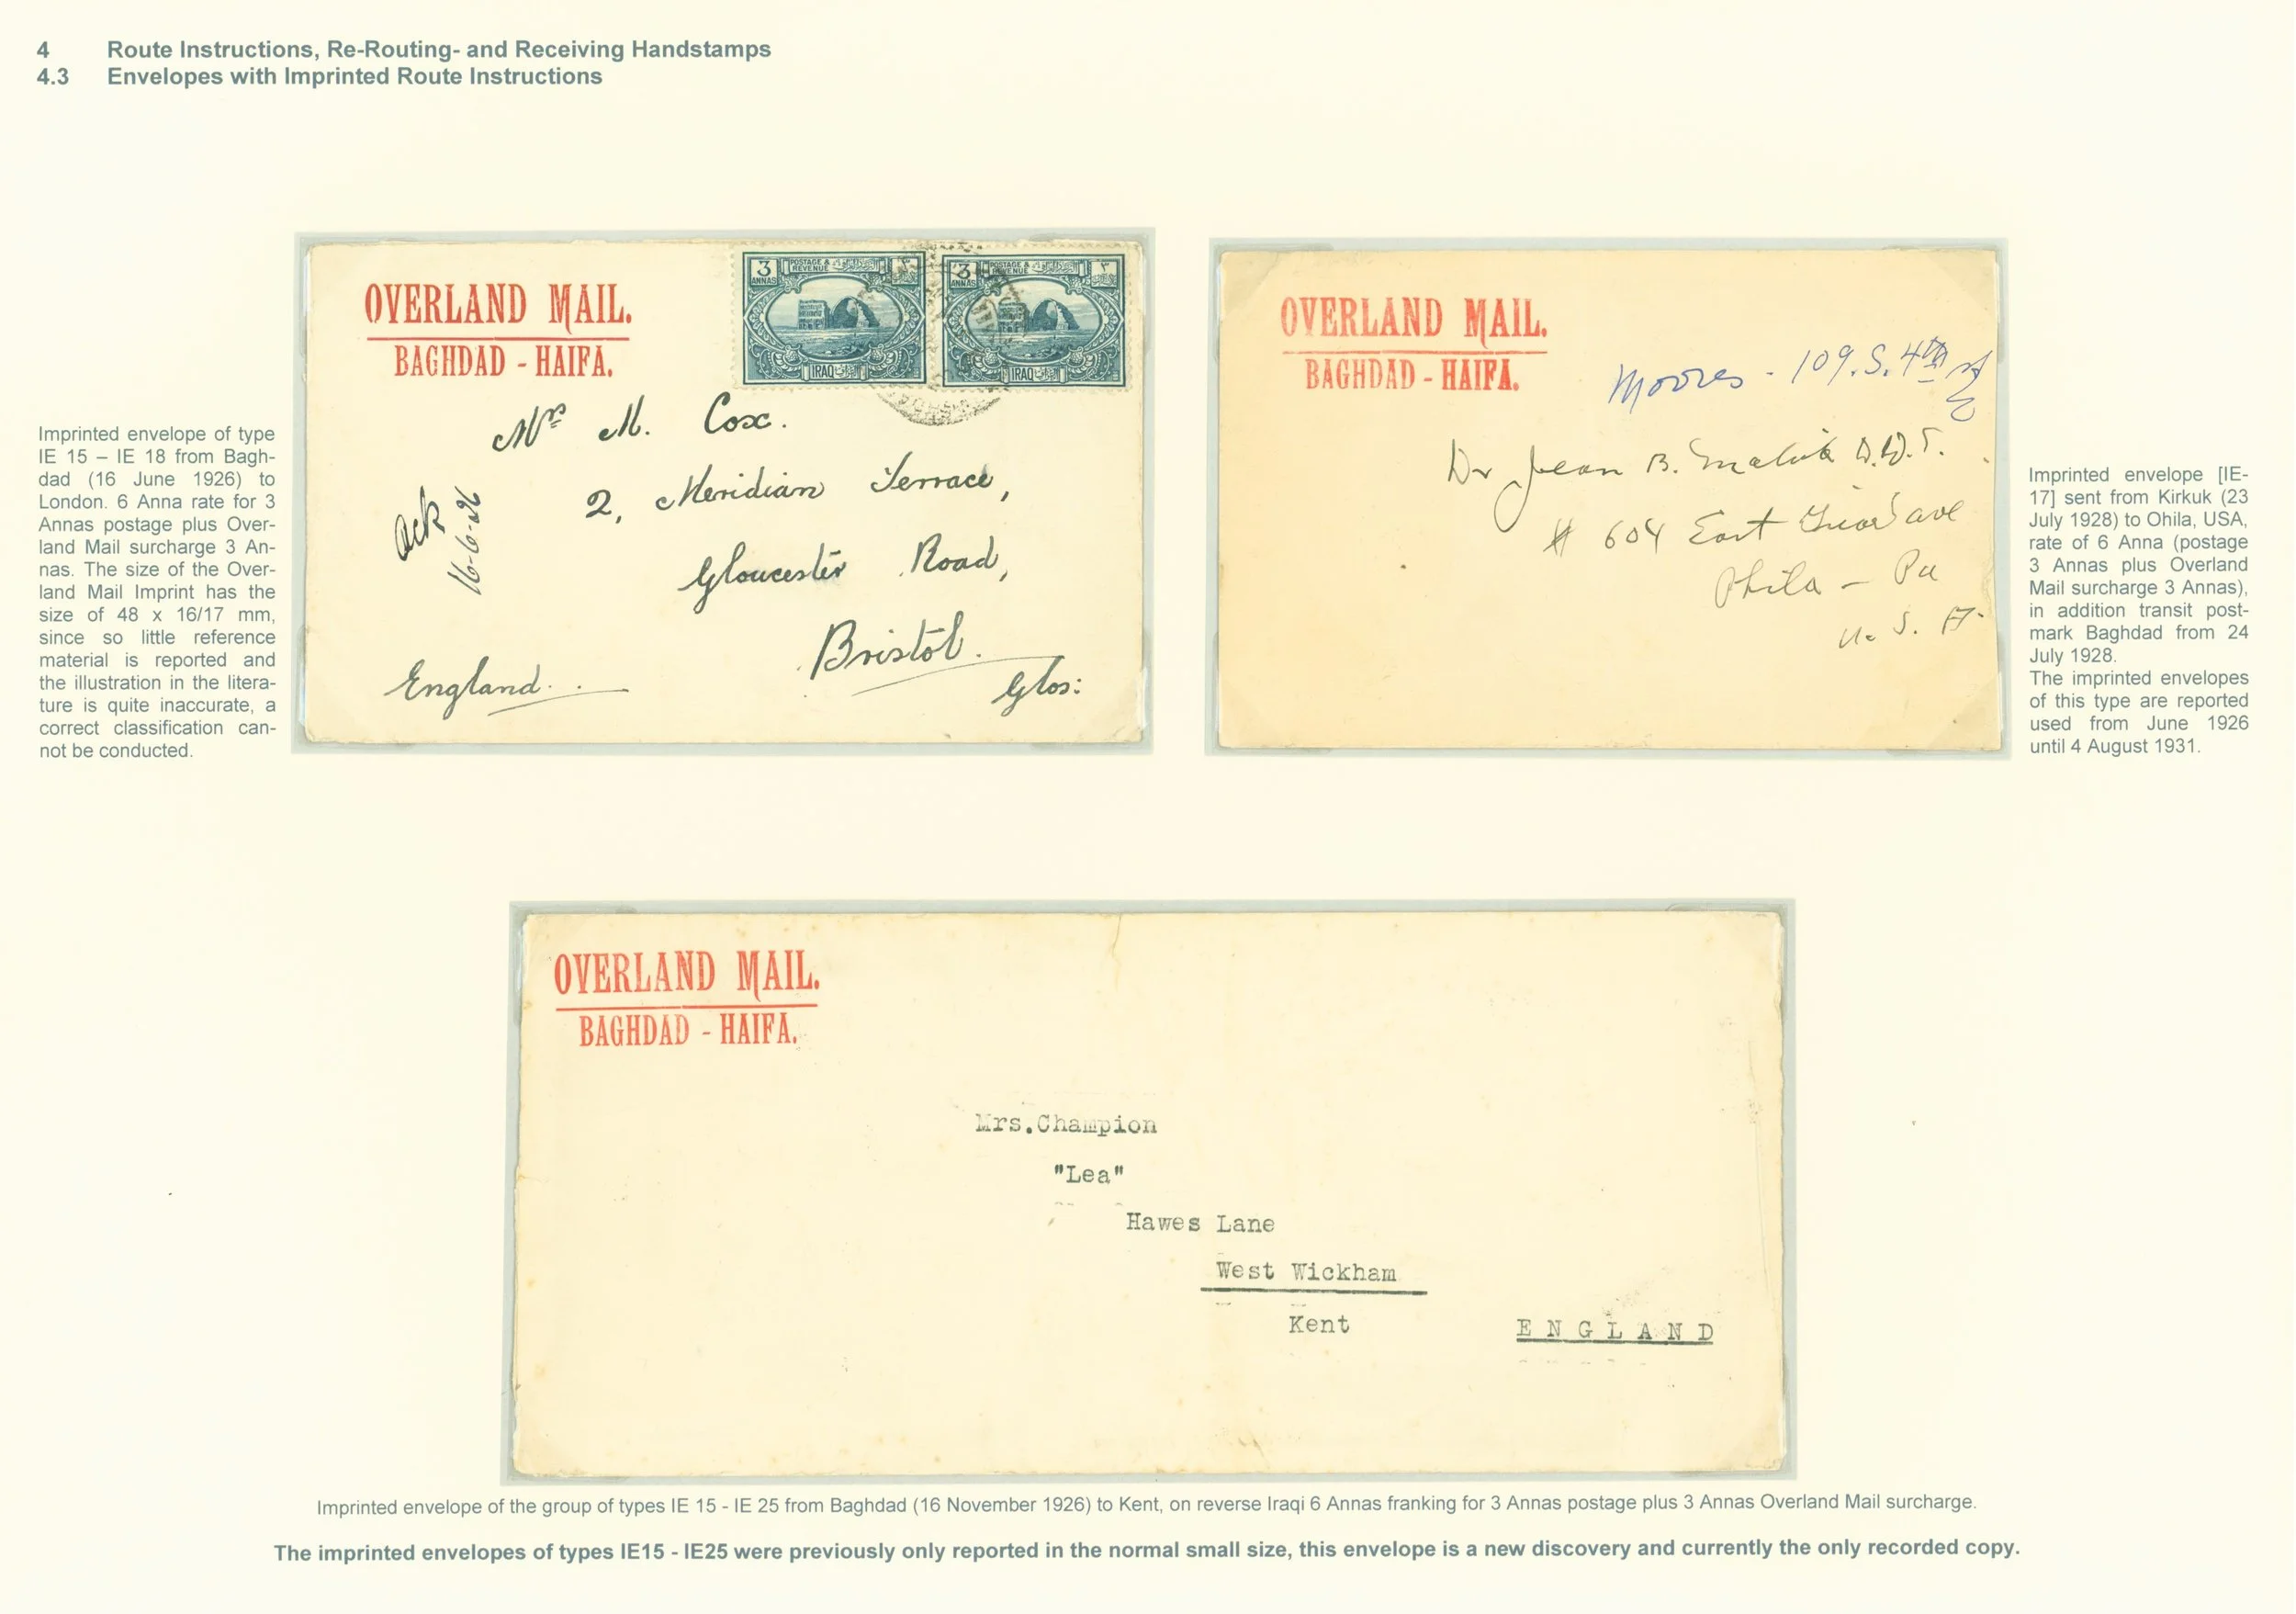 4 Route Instructions, Re-Routing- and Receiving Handstamps
4.3 Envelopes with Imprinted Route Instructions
Imprinted envelope of type
IE 15 – IE 18 from Bagh-
dad (16 June 1926) to
London. 6 Anna rate for 3
Annas postage plus Over-
land Mail surcharge 3 An-
nas. The size of the Over-
land Mail Imprint has the
size of 48 x 16/17 mm,
since so little reference
material is reported and
the illustration in the litera-
ture is quite inaccurate, a
correct classification can-
not be conducted.
OVERLAND MAIL.
BAGHDAD - HAIFA.
3 ANNAS
POSTAGE &
REVENUE
IRAQ
3 ANNAS
POSTAGE &
REVENUE
IRAQ
Mrs M. Cox.
2, Meridian Terrace,
Gloucester Road,
Bristol.
Glos:
England.
Ack
16-6-26
OVERLAND MAIL.
BAGHDAD - HAIFA.
Moores - 109. S. 4th St
Dr Jean B.
# 604 East ave
Phila - Pa
U. S. A.
Imprinted envelope [IE-
17] sent from Kirkuk (23
July 1928) to Ohila, USA,
rate of 6 Anna (postage
3 Annas plus Overland
Mail surcharge 3 Annas),
in addition transit post-
mark Baghdad from 24
July 1928.
The imprinted envelopes
of this type are reported
used from June 1926
until 4 August 1931.
OVERLAND MAIL.
BAGHDAD - HAIFA.
Mrs.Champion
"Lea"
Hawes Lane
West Wickham
Kent
ENGLAND
Imprinted envelope of the group of types IE 15 - IE 25 from Baghdad (16 November 1926) to Kent, on reverse Iraqi 6 Annas franking for 3 Annas postage plus 3 Annas Overland Mail surcharge.
The imprinted envelopes of types IE15 - IE25 were previously only reported in the normal small size, this envelope is a new discovery and currently the only recorded copy.